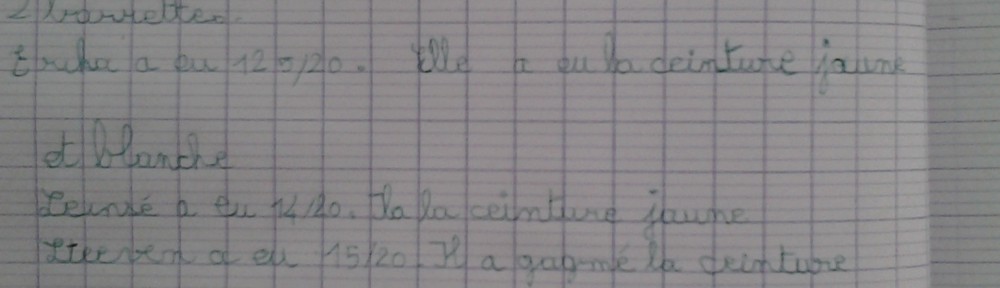 2 barrettes.
a eu 12 5/20. Elle a eu la ceinture jaune
et blanche
a eu 14/20. Ila la ceinture jaune
Steeven a eu 15/20. Il a gagné la ceinture